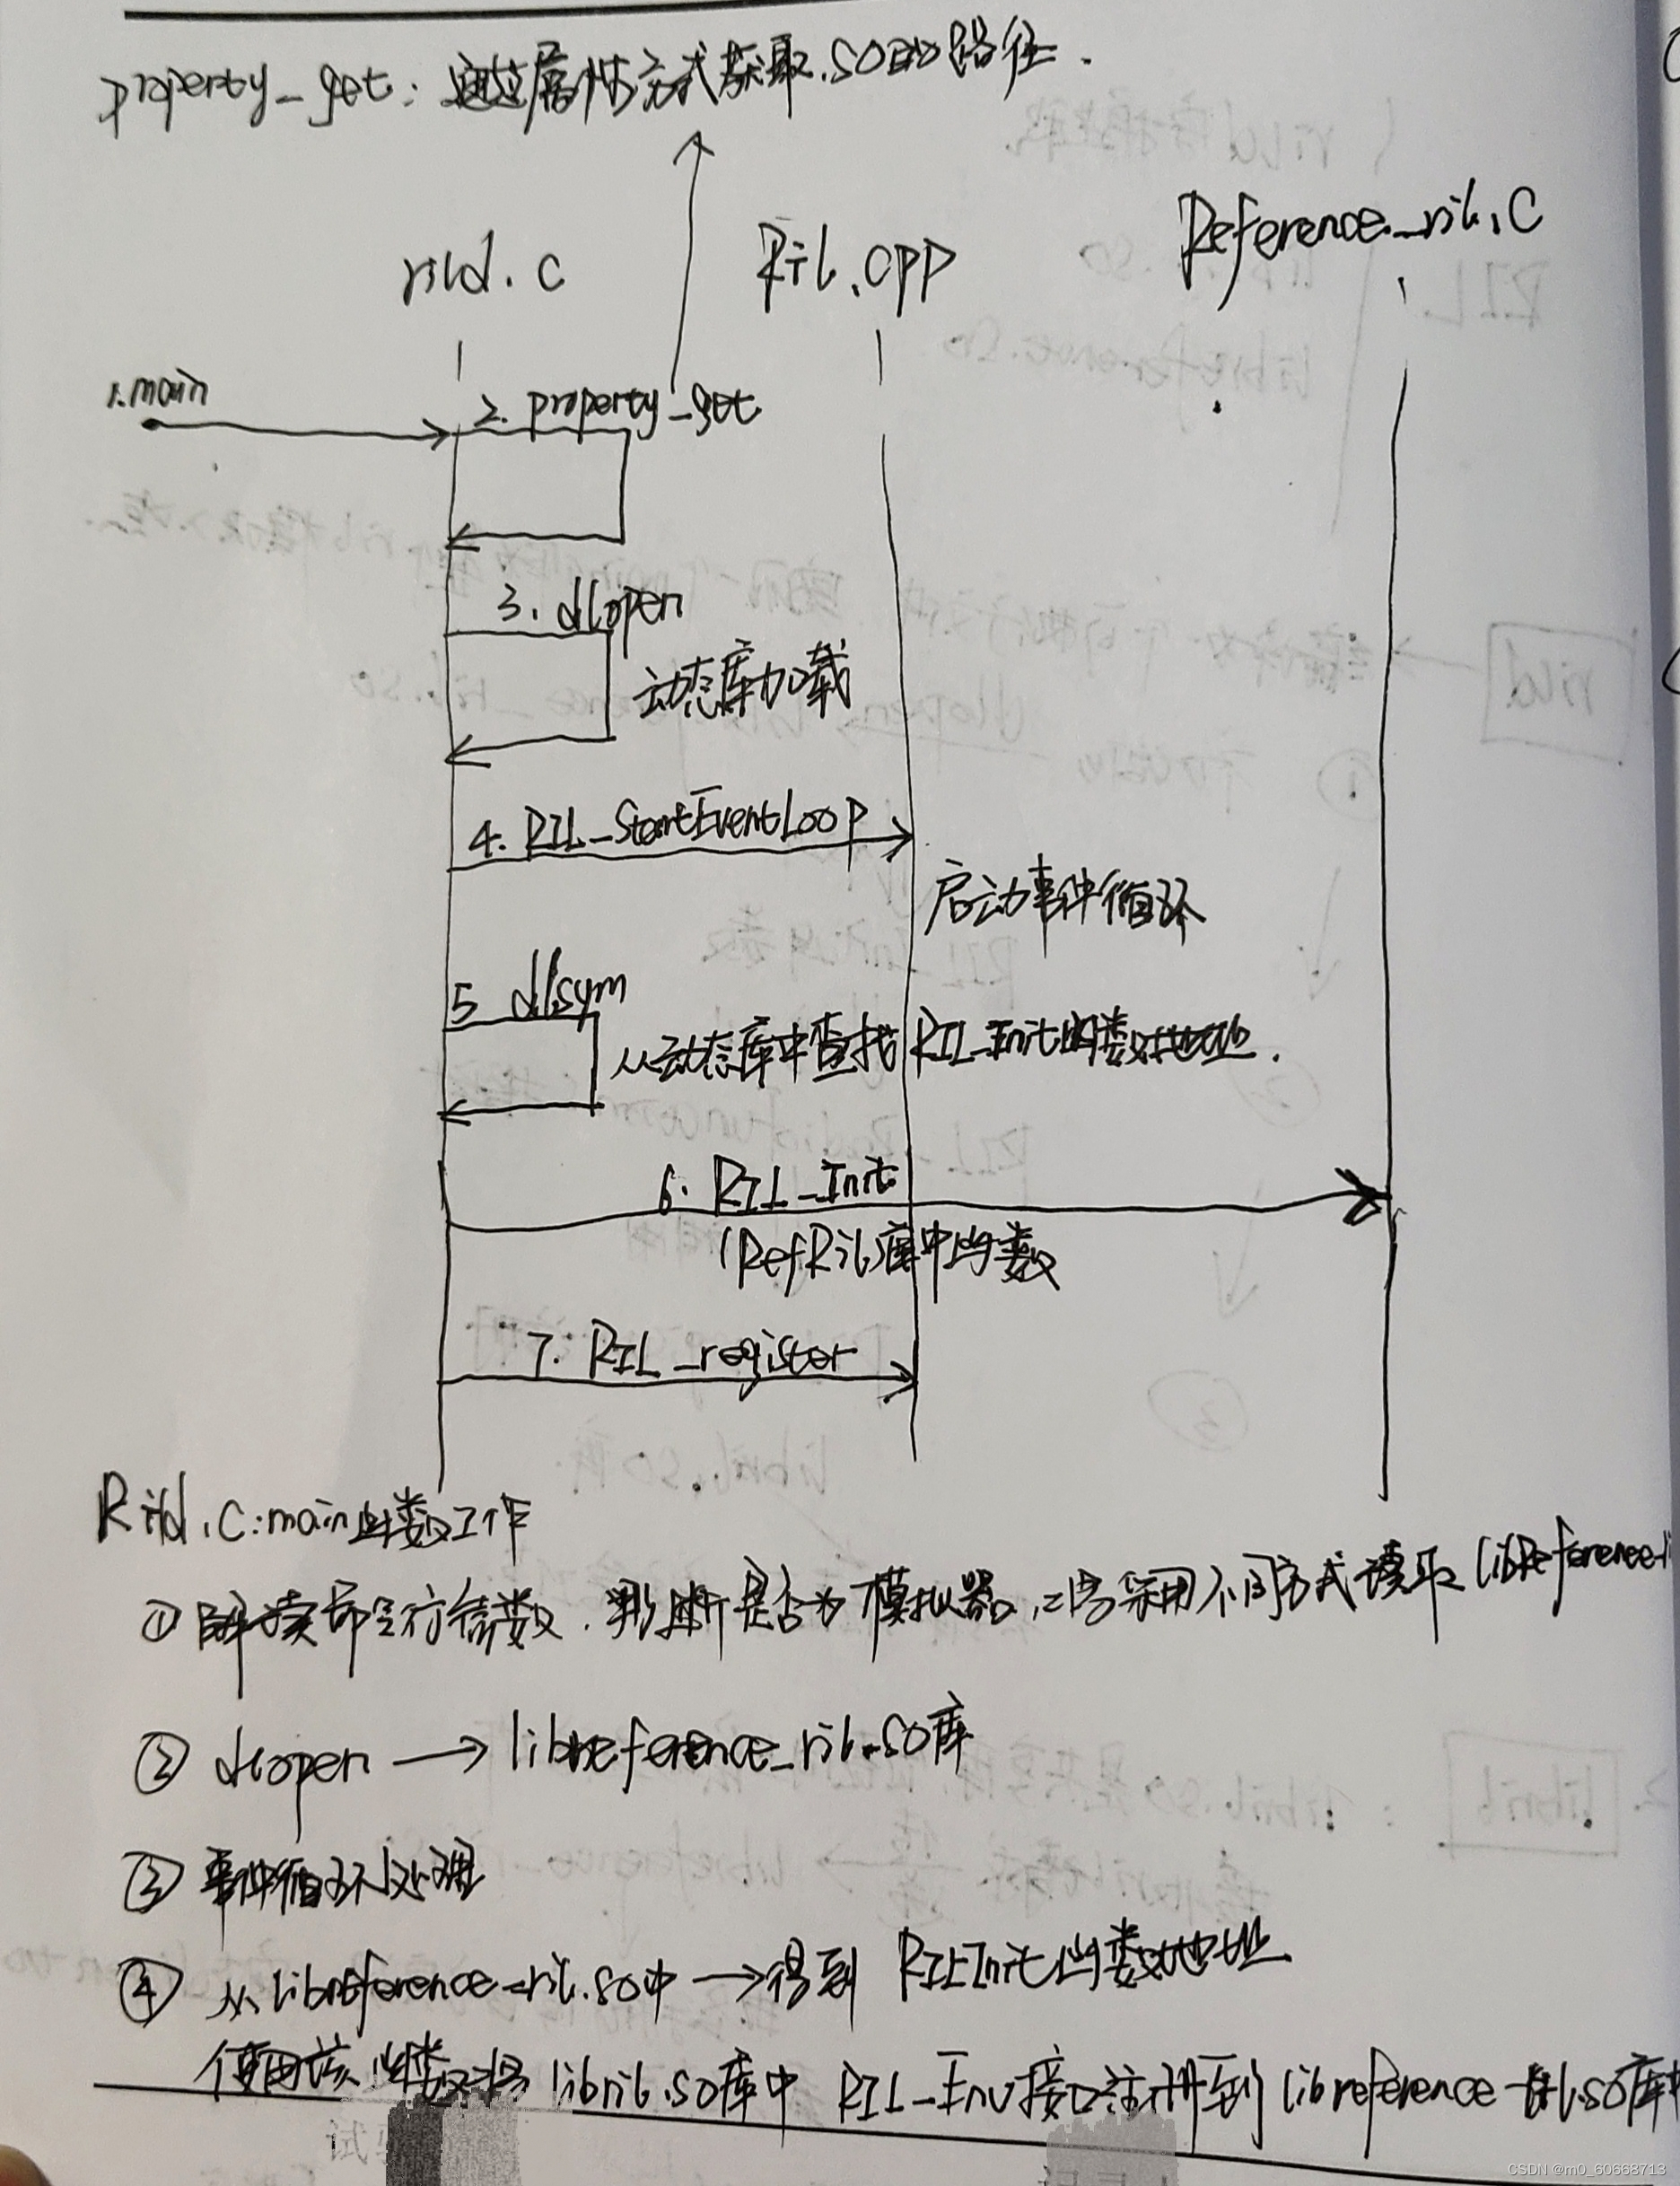 property_get: 通过属性方式获取.so的路径.
rild.c
Ril.cpp
Reference_ril.c
1.main
2. property_get
3. dlopen
动态库加载
4. RIL_StartEventLoop
启动事件循环
5 dlsym
从动态库中查找RIL_Init函数地址.
6. RIL_Init
(RefRil库中函数
7. RIL_register
Rild.c:main函数工作
① 解读命令行参数.判断是否为模拟器,采用不同方式读取 libReference
② dlopen → libreference_ril.so库
③ 事件循环处理
④ 从libreference_ril.so中 →得到 RIL_Init函数地址
使用该函数将 libril.so库中 RIL_Env接口注册到 libreference_ril.so库中
CSDN @m0_60668713